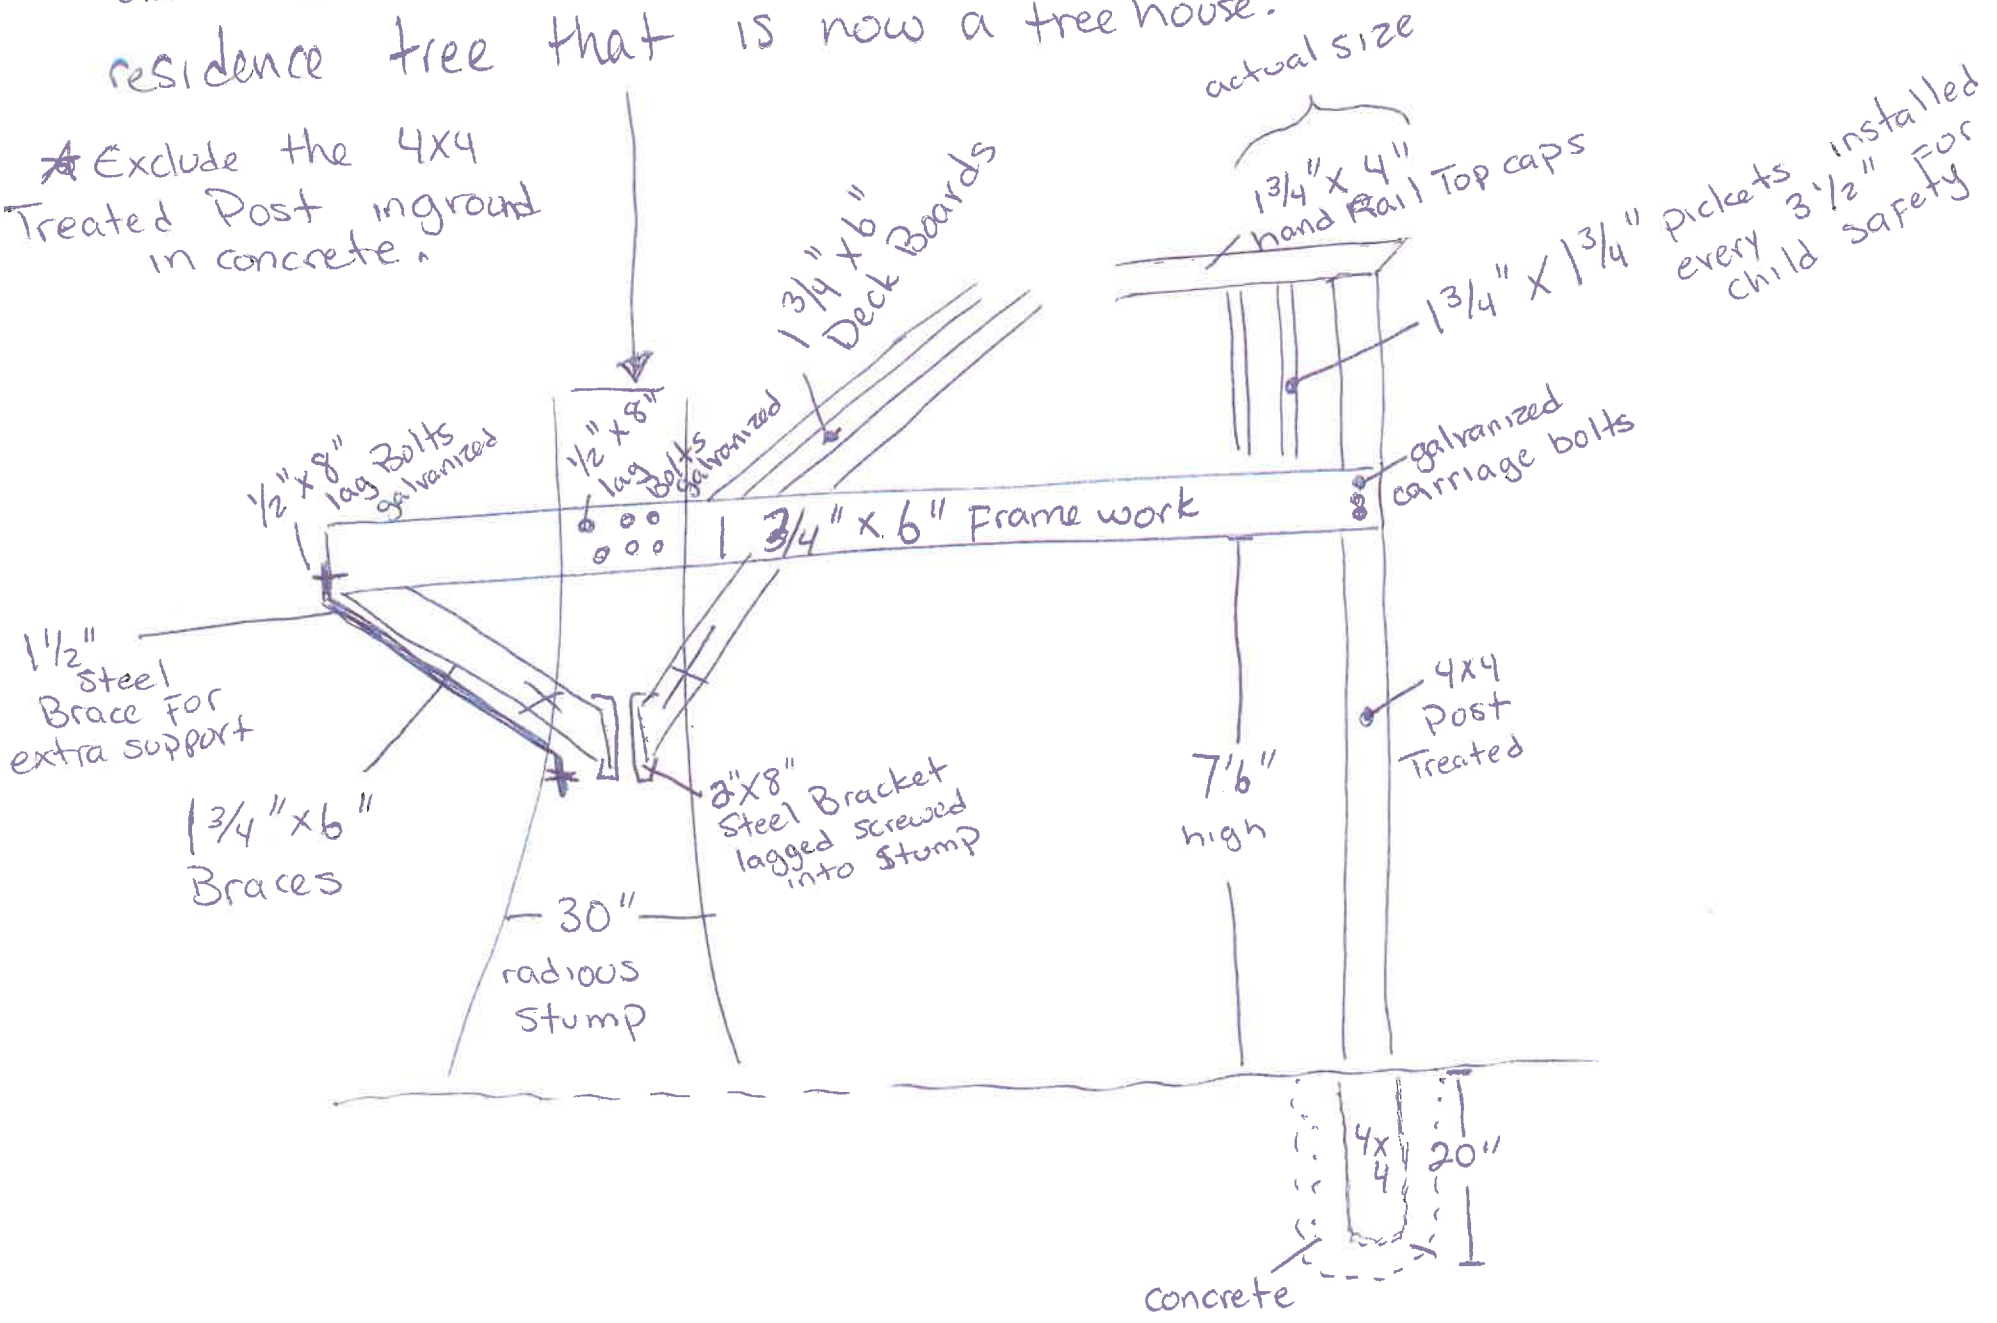 residence tree that is now a tree house.
* Exclude the 4x4
Treated Post inground
in concrete.
actual size
1 3/4" x 4"
hand Rail Top caps
1 3/4" x 1 3/4" pickets installed
every 3 1/2" For
child safety
1 3/4" x 6"
Deck Boards
1/2" x 8"
lag Bolts
galvanized
1/2" x 8"
lag Bolts
galvanized
galvanized
carriage bolts
1 3/4" x 6" Frame work
1 1/2"
Steel
Brace For
extra support
1 3/4" x 6"
Braces
2"x8"
Steel Bracket
lagged screwed
into Stump
4x4
Post
Treated
7'6"
high
30"
radious
Stump
4x
4
20"
concrete